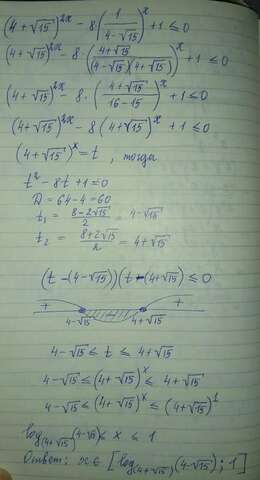 (4+√15)^2x - 8·(1/(4-√15))^x + 1 ≤ 0
(4+√15)^2x - 8·((4+√15)/((4-√15)(4+√15)))^x + 1 ≤ 0
(4+√15)^2x - 8·((4+√15)/(16-15))^x + 1 ≤ 0
(4+√15)^2x - 8(4+√15)^x + 1 ≤ 0
(4+√15)^x = t, тогда
t² - 8t + 1 = 0
D = 64-4 = 60
t₁ = (8-2√15)/2 = 4-√15
t₂ = (8+2√15)/2 = 4+√15
(t-(4-√15))(t-(4+√15)) ≤ 0
+ - +
4-√15 4+√15
4-√15 ≤ t ≤ 4+√15
4-√15 ≤ (4+√15)^x ≤ 4+√15
4-√15 ≤ (4+√15)^x ≤ (4+√15)^1
log_(4+√15) (4-√15) ≤ x ≤ 1
Ответ: x ∈ [log_(4+√15) (4-√15); 1]